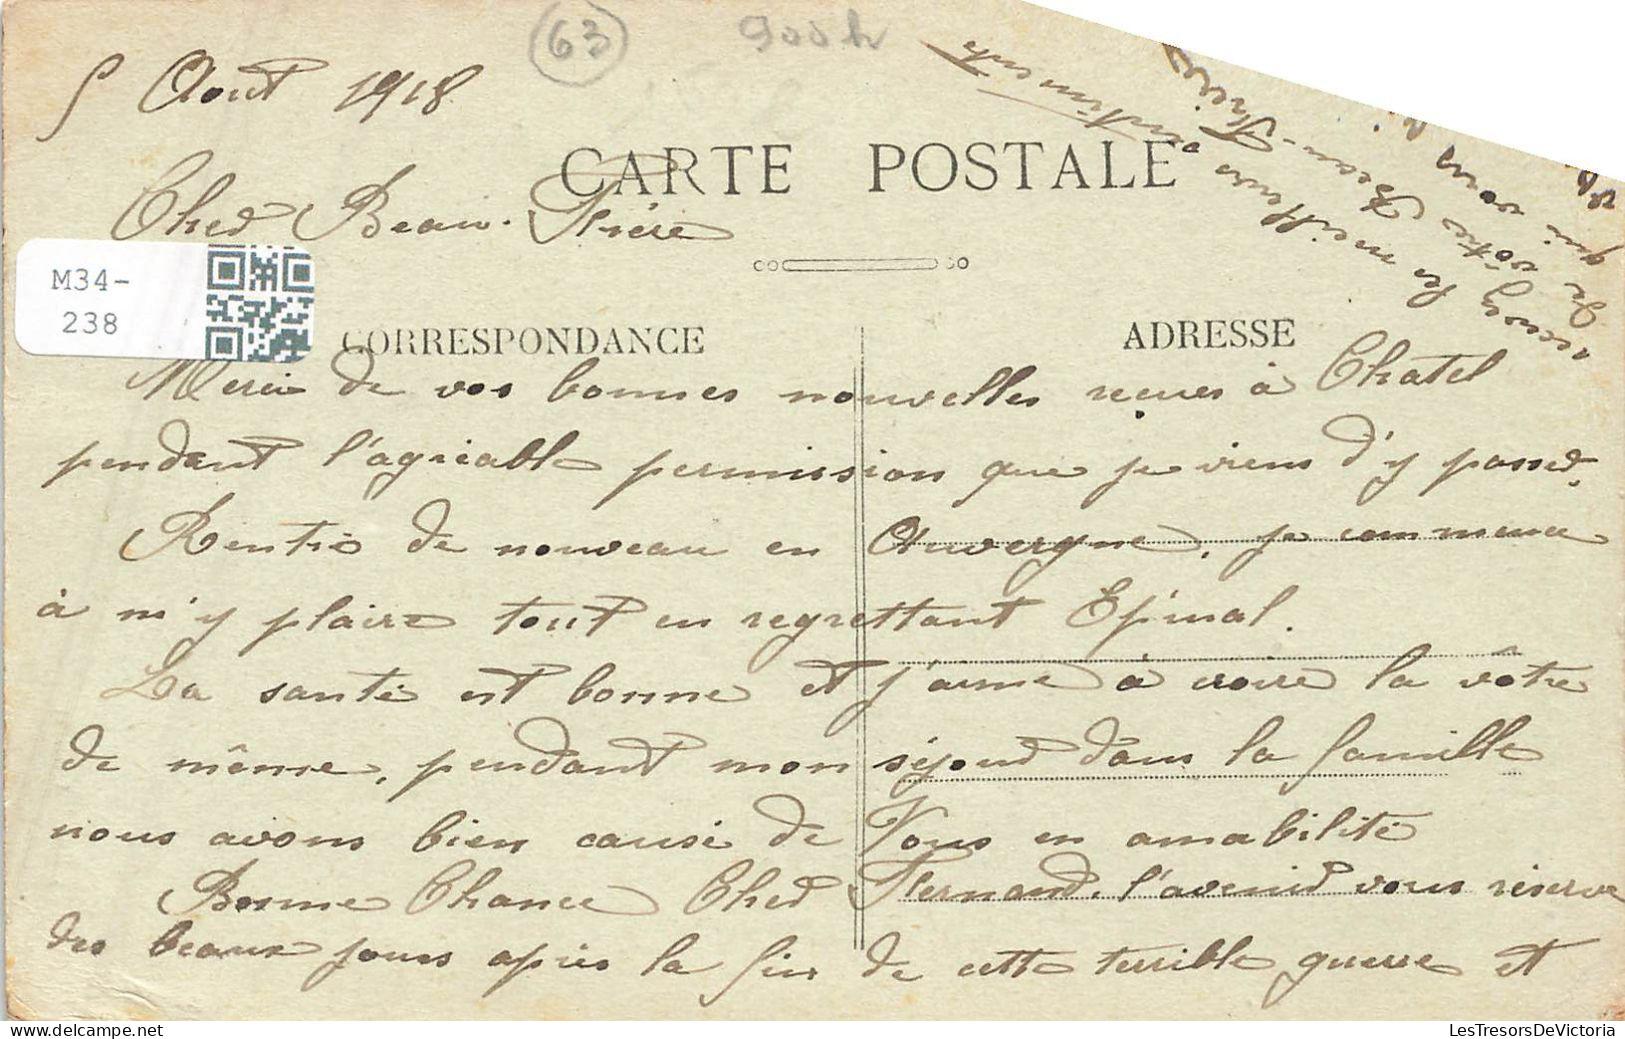 63
900h
5 Aout 1918
CARTE POSTALE
Cher Beau-Frère
M34-
238
CORRESPONDANCE
ADRESSE
Merci de vos bonnes nouvelles recues à Chatel
pendant l'agréable permission que je viens d'y passer.
Rentré de nouveau en Auvergne, je commence
à m'y plaire tout en regrettant Epinal.
La santé est bonne et j'aime à croire la vôtre
de même, pendant mon séjour dans la famille
nous avons bien causé de Vous en amabilité
Bonne Chance Cher Fernand, l'avenir vous réserve
des beaux jours après la fin de cette terrible guerre et
recevez les meilleurs sentiments
de votre Beau-Frère
qui vous
LesTresorsDeVictoria